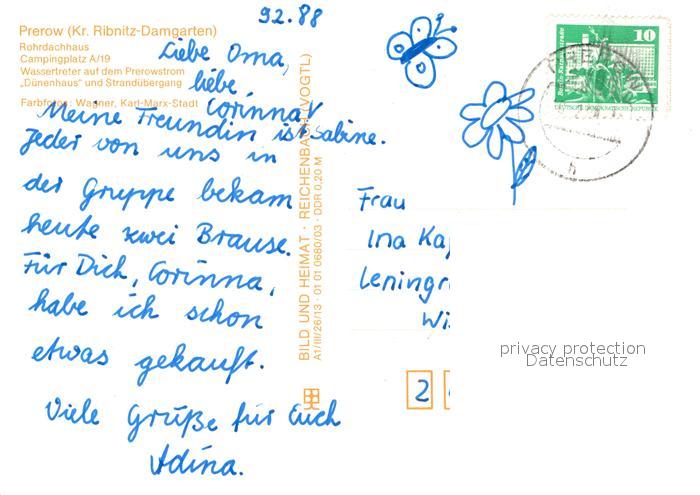 92.88
Prerow (Kr. Ribnitz-Damgarten)
Rohrdachhaus
Campingplatz A/19
Wassertreter auf dem Prerowstrom
„Dünenhaus" und Strandübergang
Farbfotos: Wagner, Karl-Marx-Stadt
Liebe Oma,
liebe
Corinna!
Meine Freundin ist Sabine.
Jeder von uns in
der Gruppe bekam
heute zwei Brause.
Für Dich, Corinna,
habe ich schon
etwas gekauft.
Viele Grüße für Euch
Adina.
BILD UND HEIMAT · REICHENBACH (VOGTL)
A1/III/26/13 · 01 01 0680/03 · DDR 0,20 M
10
DEUTSCHE DEMOKRATISCHE REPUBLIK
h
Frau
Ina Ka
Leningr
Wi
2
privacy protection
Datenschutz